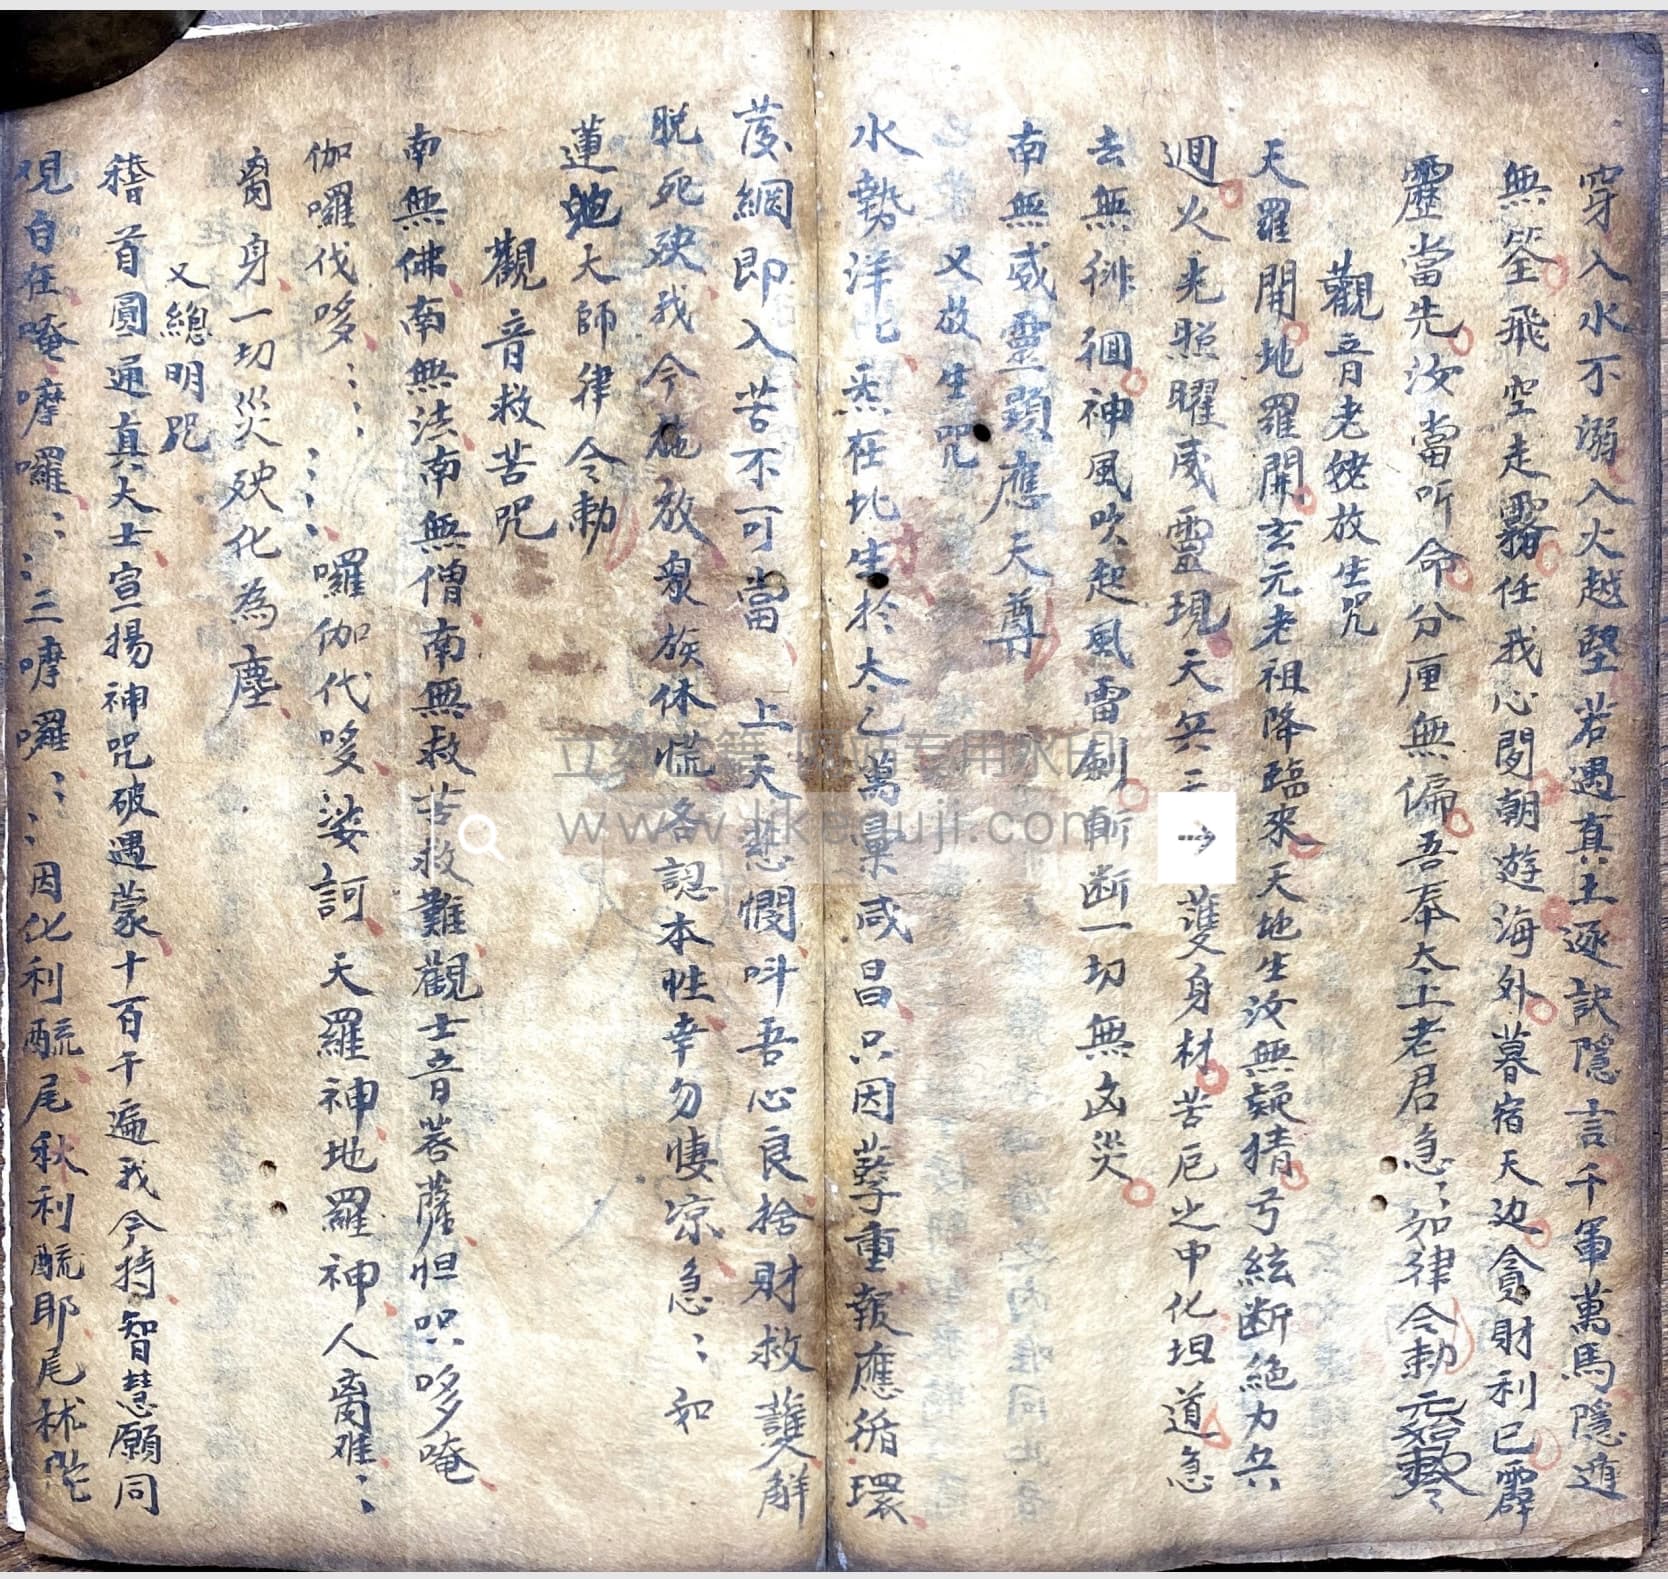 穿入水不溺入火越堅若遇真土逐訣隱言千軍萬馬隱遁
無筌飛空走霧任我心閑朝遊海外暮宿天边貪財利己霹
靂當先汝當听命分厘無偏吾奉太上老君急〻如律令勅
觀音老姥放生咒
天羅開地羅開玄元老祖降臨來天地生汝無疑猜弓絃断絕力兵
迴火光照曜威靈現天兵三 護身材苦厄之中化坦道急
去無徘徊神風吹起風雷劍斬断一切無凶災
南無威靈顕應天尊
又放生咒
水勢洋〻恶在此生於太乙萬彙咸昌只因孽重報應循環
綱即入苦不可當 上天慈憫叫吾心良捨財救護解
脱死殃我今施放衆族休慌各認本性幸勿悽凉急〻如
蓮池大師律令勅
觀音救苦咒
南無佛南無法南無僧南無救苦救難觀士音菩薩怛只哆唵
伽囉伐哆〻〻〻〻〻囉伽伐哆娑訶天羅神地羅神人离难〻〻
离身一切災殃化為塵
又總明咒
稽首圓通真大士宣揚神咒破遇蒙十百千遍我今持智慧願同
観自在唵嚤囉〻〻三嚤囉〻〻因化利酼尾秋利酼耶尾秫
立刻古籍 网站专用水印
www.likeguji.com